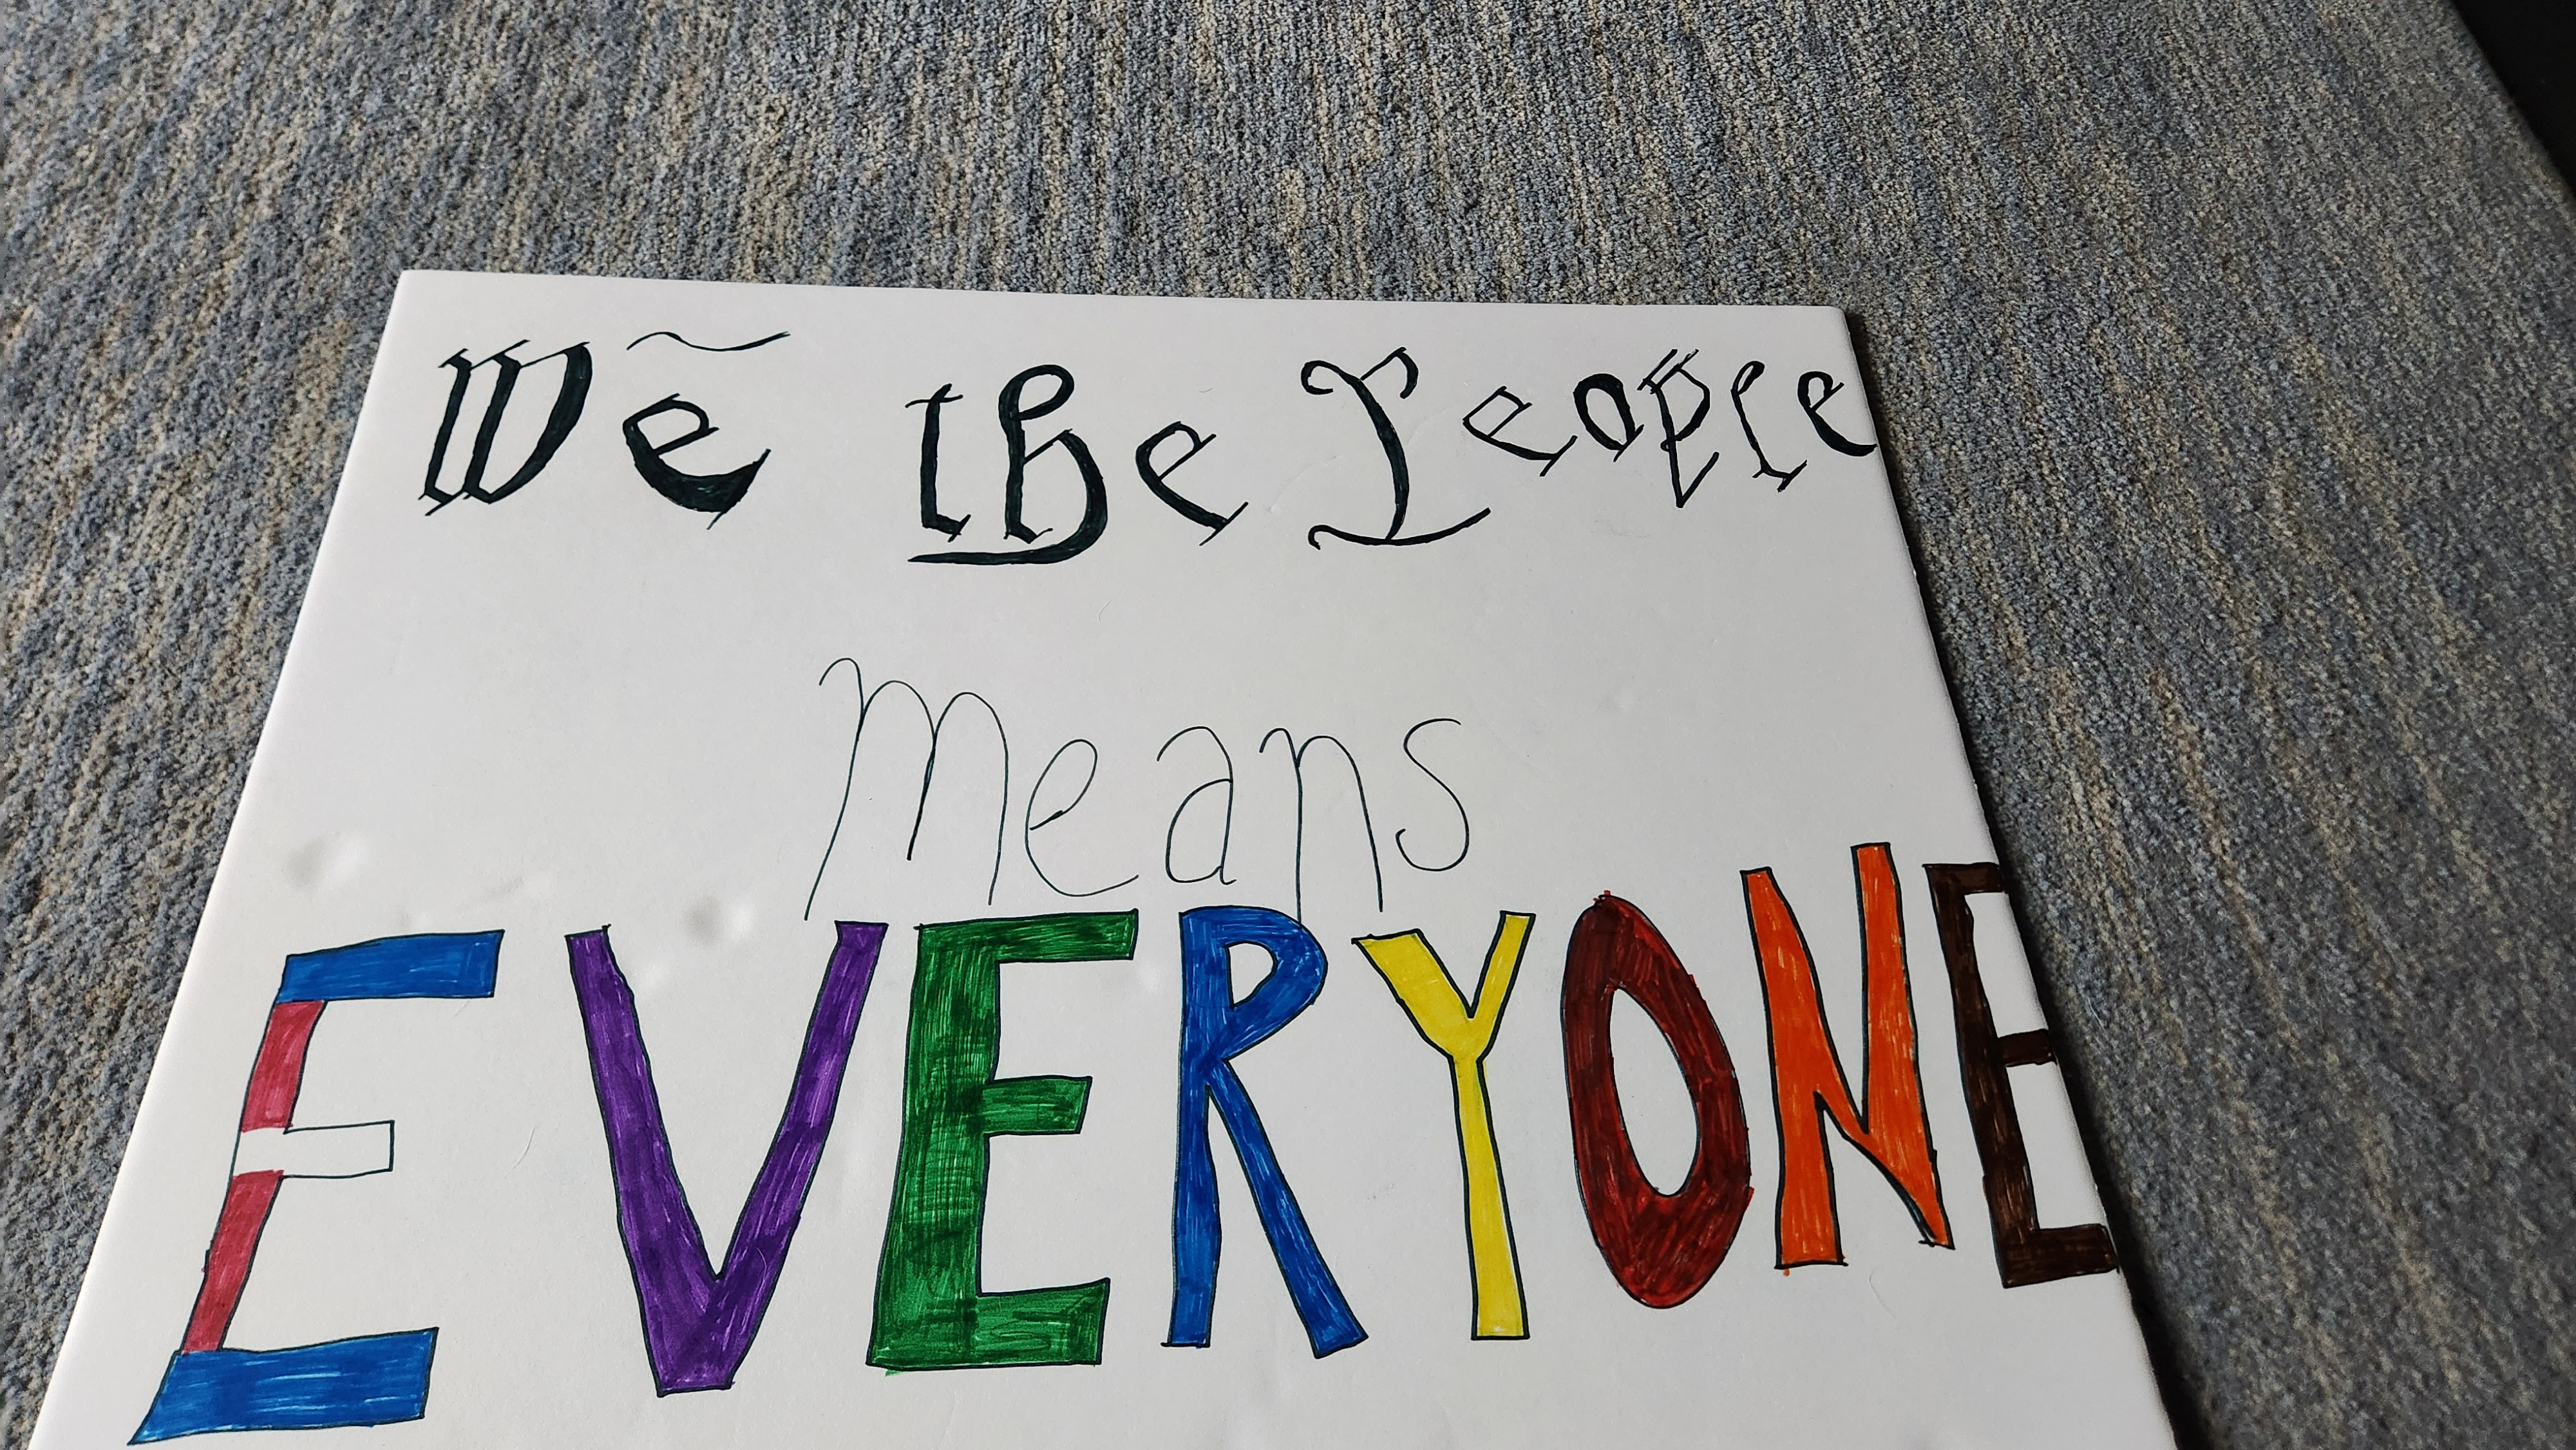 We the People
means
EVERYONE